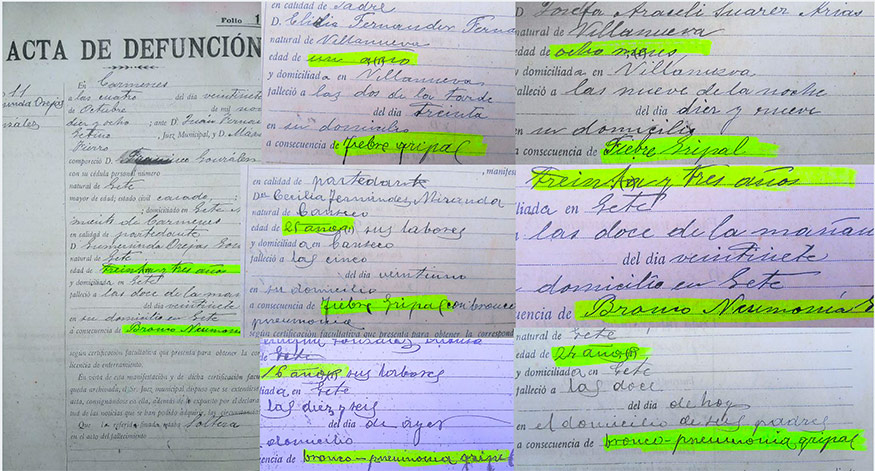 Folio 1
ACTA DE DEFUNCIÓN
En Cármenes
a las cuatro del día veintisiete
de Octubre de mil nov
diez y ocho; ante D. Juan
, Juez Municipal, y D.
Fierro
compareció D. Francisco González
con su cédula personal número
natural de Gete
mayor de edad; estado civil casado
; domiciliado en Gete
de Cármenes
en calidad de
D. Gumersinda Orejas
natural de Gete
edad de treinta y tres años
y domiciliada en Gete
falleció a las doce de la
del día veintisiete
en su domicilio en Gete
a consecuencia de Bronco Neumonía
según certificación facultativa que presenta para obtener la
de enterramiento.
En vista de esta manifestación y de dicha certificación
queda archivada, el Sr. Juez municipal dispuso que se extendiera
acta, consignándose en ella, además de lo expuesto por el
de las noticias que se han podido adquirir, las circunstancias
Que la referida finada estaba soltera
en el acto del fallecimiento
11
Orejas
en calidad de Padre
D. Elida Fernández
natural de Villanueva
edad de un año
y domiciliada en Villanueva
falleció a las dos de la tarde
del día treinta
en su domicilio
a consecuencia de Fiebre gripal
, manifes
en calidad de
Dª Cecilia Fernández Miranda
natural de Canseco
edad de 25 años sus labores
y domiciliada en Canseco
falleció a las cinco
del día veintiuno
en su domicilio
a consecuencia de Fiebre Gripal con bronco
pneumonia
según certificación facultativa que presenta para obtener la correspond
Gete
16 años sus labores
da en Gete
las diez y seis
del día de ayer
domicilio
encia de bronco-pneumonia gripal
D. Josefa Araceli Suarez Arias
natural de Villanueva
edad de ocho meses
y domiciliada en Villanueva
falleció a las nueve de la noche
del día diez y nueve
en su domicilio
a consecuencia de Fiebre Gripal
treinta y tres años
iliada en Gete
las doce de la mañana
del día veintisiete
domicilio en Gete
encia de Bronco Neumonía
natural de Gete
edad de 24 años
y domiciliada en Gete
falleció a las doce
del día de hoy
en el domicilio de sus padres
a consecuencia de bronco-pneumonia gripal